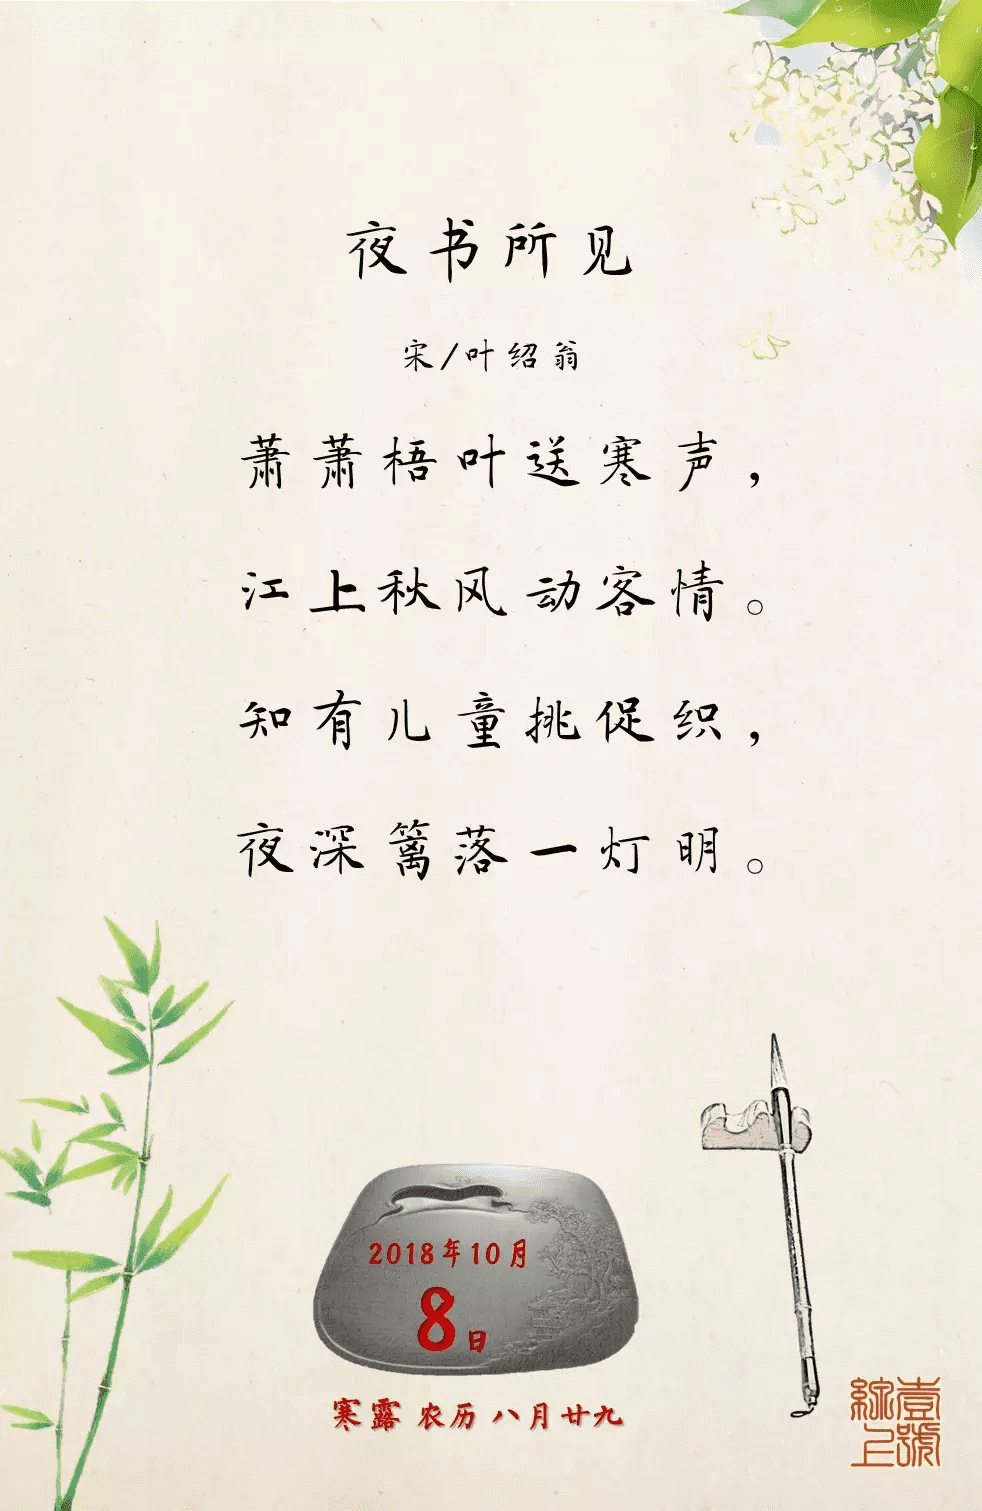 夜书所见
宋/叶绍翁
萧萧梧叶送寒声，
江上秋风动客情。
知有儿童挑促织，
夜深篱落一灯明。
2018年10月
8日
寒露 农历 八月廿九